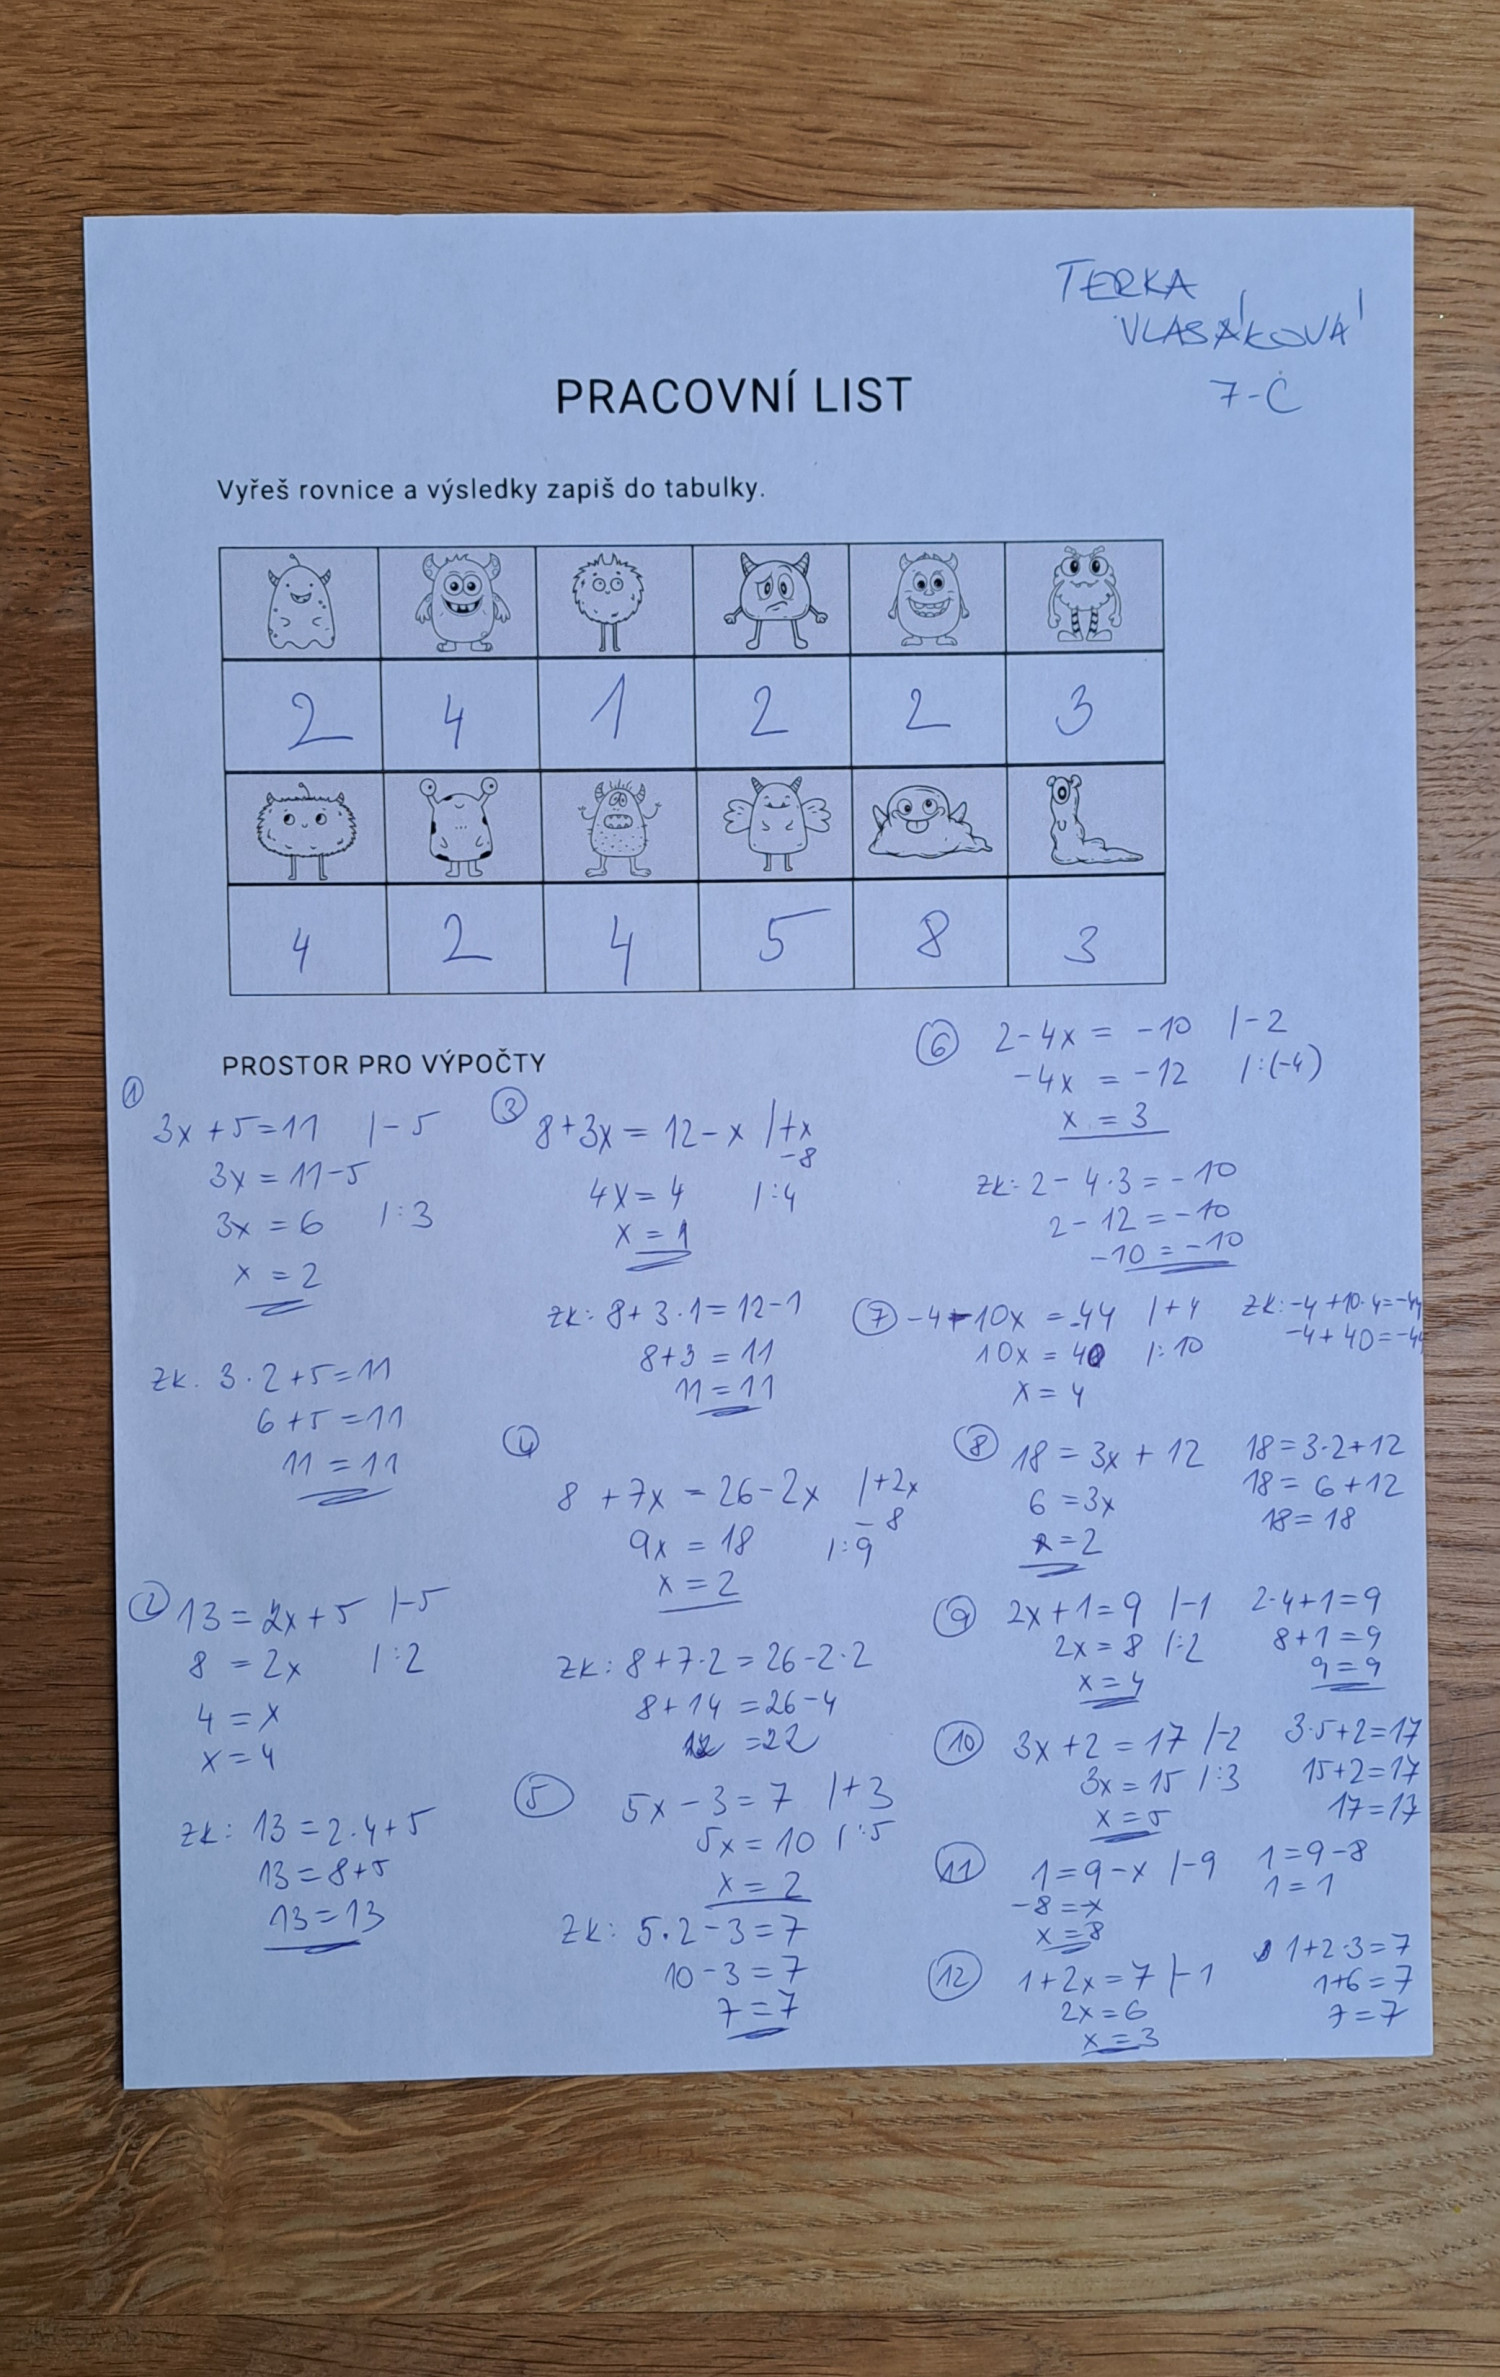 TERKA
VLASÁKOVÁ
7-C
PRACOVNÍ LIST
Vyřeš rovnice a výsledky zapiš do tabulky.
2 4 1 2 2 3
4 2 4 5 8 3
PROSTOR PRO VÝPOČTY
1
3x + 5 = 11 |-5
3x = 11-5
3x = 6 |:3
x = 2
zk. 3·2+5=11
6+5=11
11=11
2 13 = 2x+5 |-5
8 = 2x |:2
4 = x
x = 4
zk: 13 = 2·4+5
13 = 8+5
13 = 13
3 8+3x = 12-x |+x
-8
4x = 4 |:4
x = 1
zk: 8+3·1=12-1
8+3 = 11
11 = 11
4
8 + 7x = 26-2x |+2x
-8
9x = 18 |:9
x = 2
zk: 8+7·2=26-2·2
8+14 = 26-4
=22
5 5x - 3 = 7 |+3
5x = 10 |:5
x = 2
zk: 5·2-3=7
10-3=7
7=7
6 2-4x = -10 |-2
-4x = -12 |:(-4)
x = 3
zk: 2-4·3=-10
2-12=-10
-10=-10
7 -4-10x = -44 |+4 zk: -4+10·4=-44
10x = 40 |:10 -4+40=-44
x = 4
8 18 = 3x + 12 18=3·2+12
6 = 3x 18=6+12
x = 2 18=18
9 2x+1=9 |-1 2·4+1=9
2x=8 |:2 8+1=9
x=4 9=9
10 3x+2=17 |-2 3·5+2=17
3x=15 |:3 15+2=17
x=5 17=17
11 1=9-x |-9 1=9-8
-8=-x 1=1
x=8
12 1+2x=7 |-1 1+2·3=7
2x=6 1+6=7
x=3 7=7